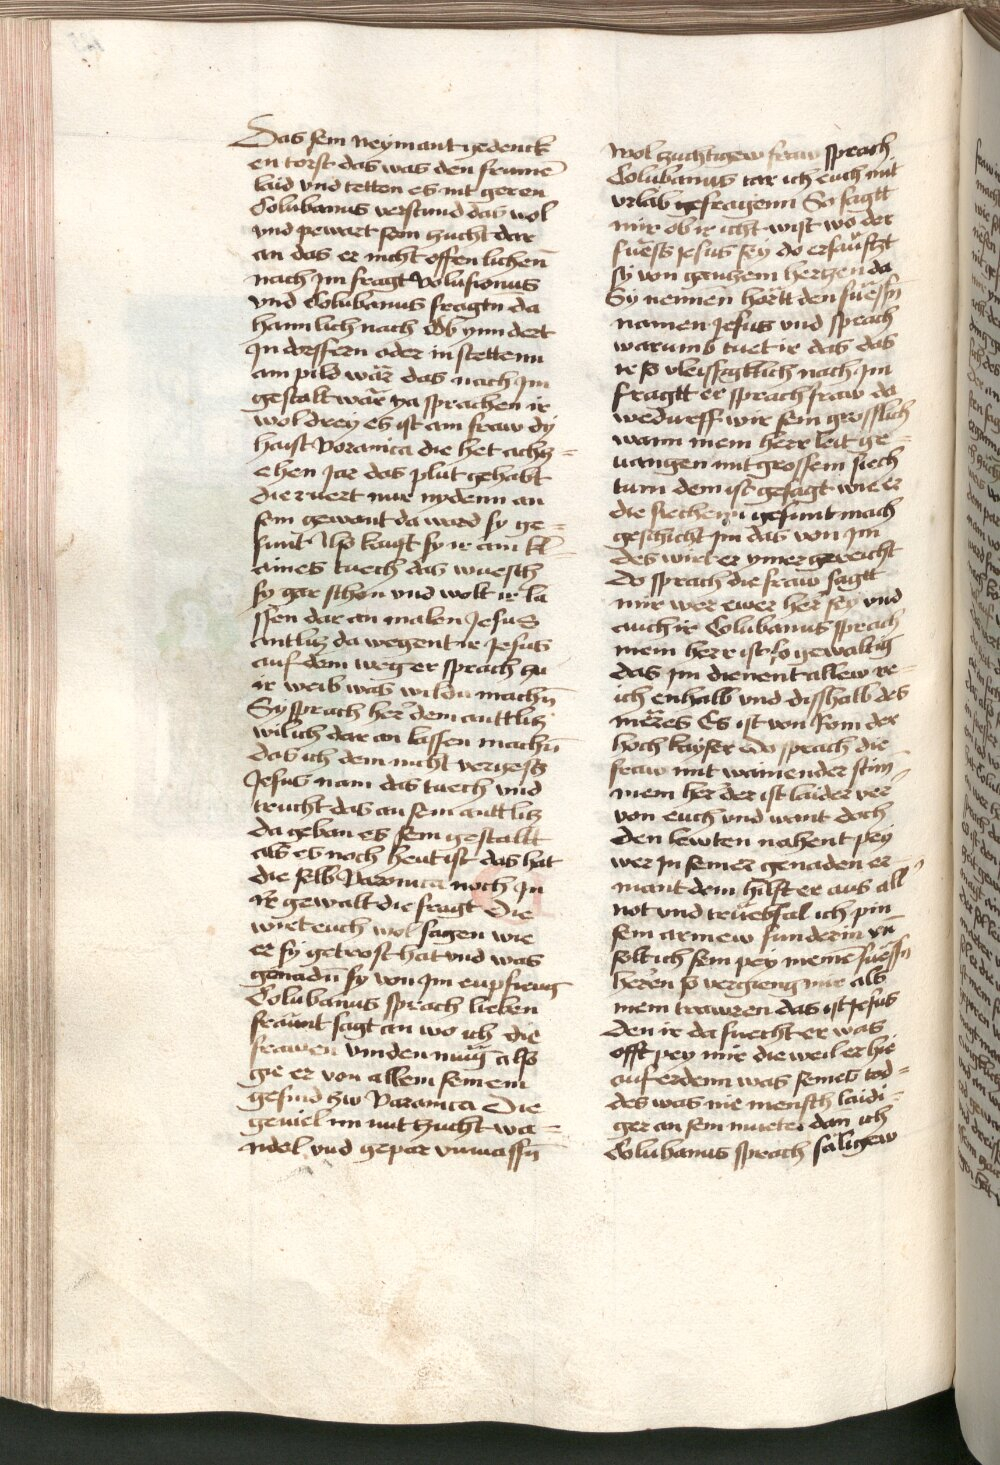 Das sein neymant gedenck
en torst das was den freunnē
laid vnd tetten es nit geren
Columbanus verstund das wol
vnd pewart sein zucht dar
an das er nicht offenlichen
nach im fragt Volusionus
vnd Colubanus fragtn da
hamlich nach Ob ynn dert
In dorffern oder in stettenn
ain pild wär das nach Im
gestalt wär ya sprachen ir
wol drey es ist ain fraw dy
haist Voranica die het achtz=
ehen Jar das plut gehabt
die ruert nur nydenn an
sein gewant da ward sy ge=
sunt Also kaust sy ir ain kl
aines tuech das wuesch
sy gar schon vnd wolt ir la
ssen dar an malen Jesus
antlutz da wegent ir Jesus
auf dem weg er sprach zu
ir weib was wildu machn̄
Sy sprach her dein anttlitz
wil ich dar an lassen machn̄
das ich dein nicht vergesß
Jesus nam das tuech vnd
trucht das an sein anttlitz
da geban es sein gestallt
als es noch heut ist das hat
die selb Varonica noch In
ir gewalt die fragt Die
wirt euch wol sagen wie
er sy getrost hat vnd was
genadn̄ sy von Im enpfieng
Colubanus sprach lieben
freunt sagt an wo ich die
frawen vinden mug also
gie er von allem seinem
gesind zw Varanica Die
geuiel im mit zucht wa=
ndel vnd gepar vnmassn̄
wol zuchtigew fraw sprach
Colubanus tar ich euch mit
vrlab gefragenn So sagtt
mir ob ir icht wist wo der
suess Jesus sey do erseufftzt
sy von ganzem hertzen da
Sy nennen hortt den suessn̄
namen Jesus vnd sprach
warumb tuet ir das das
ir so vleissigklich nach Im
fragtt er sprach fraw da
wedurff wir sein grosslich
wann mein herr leit ge=
uangen mit grossem siech
tum dem ist gesagt wie er
die siechen gesunt mach
geschicht Im das von Im
des wirt er ymer gereicht
Do sprach die fraw sagtt
mir wer ewer her sey vnd
auch ir Colubanus sprach
mein herr ist so gewaltig
das Im dienent allew re=
ich enhalb vnd disshalb des
meres Es ist von Rom der
hoch kayser Do sprach die
fraw mit wainender stim
mein her der ist laider ver
von euch vnd want doch
den lewten nahent pey
wer In seiner genaden er=
mant dem hilft er aus all
not vnd truebsal ich pin
sein armew sunderin vn̄
solt ich sein pey meinē suessn̄
heren so vergieng mir als
mein trawren das ist Jesus
den ir da suecht er was
offt pey mir die weil er hie
auf erdenn was seines tod=
des was nie mensch laidi=
ger an sein mueter dan ich
Colubanus sprach säligew